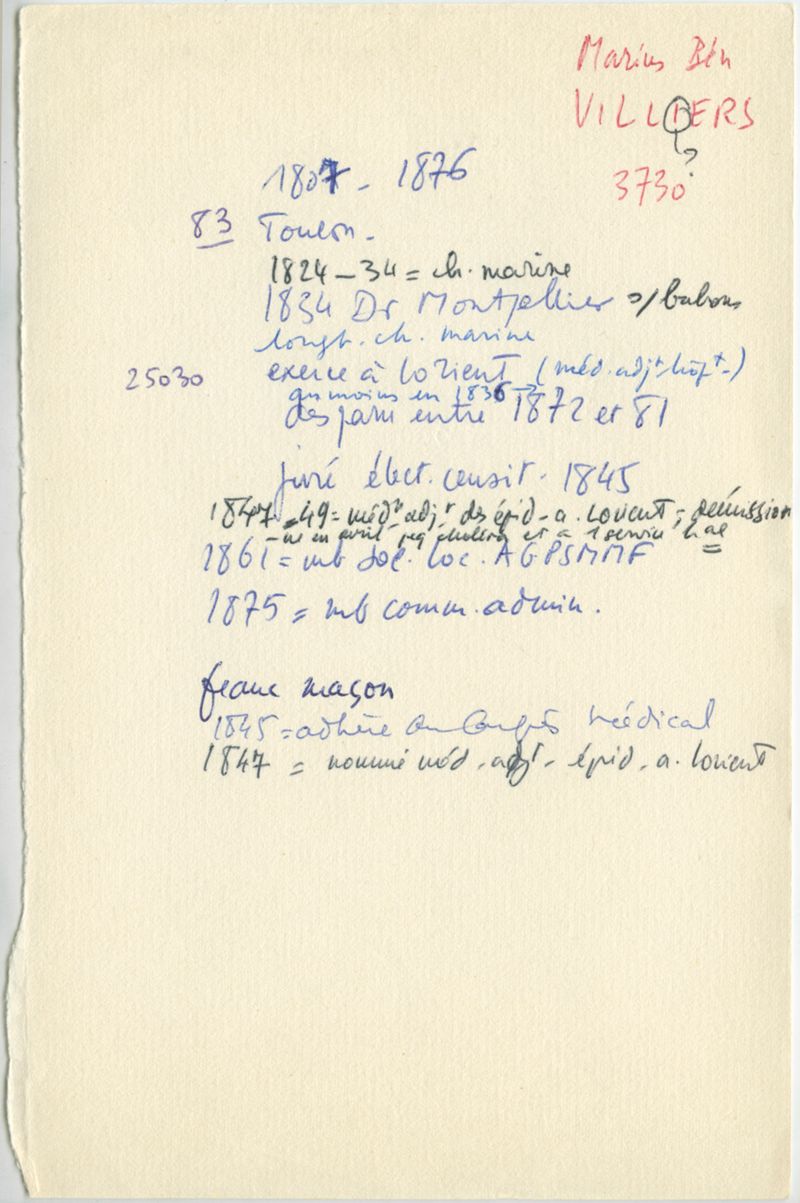 Marius Bén
VILLIERS
?
3730
1807 - 1876
83 Toulon -
1824 - 34 = ch. marine
1834 Dr Montpellier s/ bubons
longt. ch. marine
25030 exerce à Lorient (méd. adjt hôpt -)
au moins en 1836 →
disparu entre 1872 et 81
juré élect. censit. 1845
1847 - 49 = médn adjt des épid - a. Lorient = démission
en avril choléra et a 1 service hal
1861 = mb Soc. loc. AGPSMMF
1875 = mb comm. admin.
franc maçon
1845 = adhère au Congrès Médical
1847 = nommé méd. adjt - épid - a. Lorient